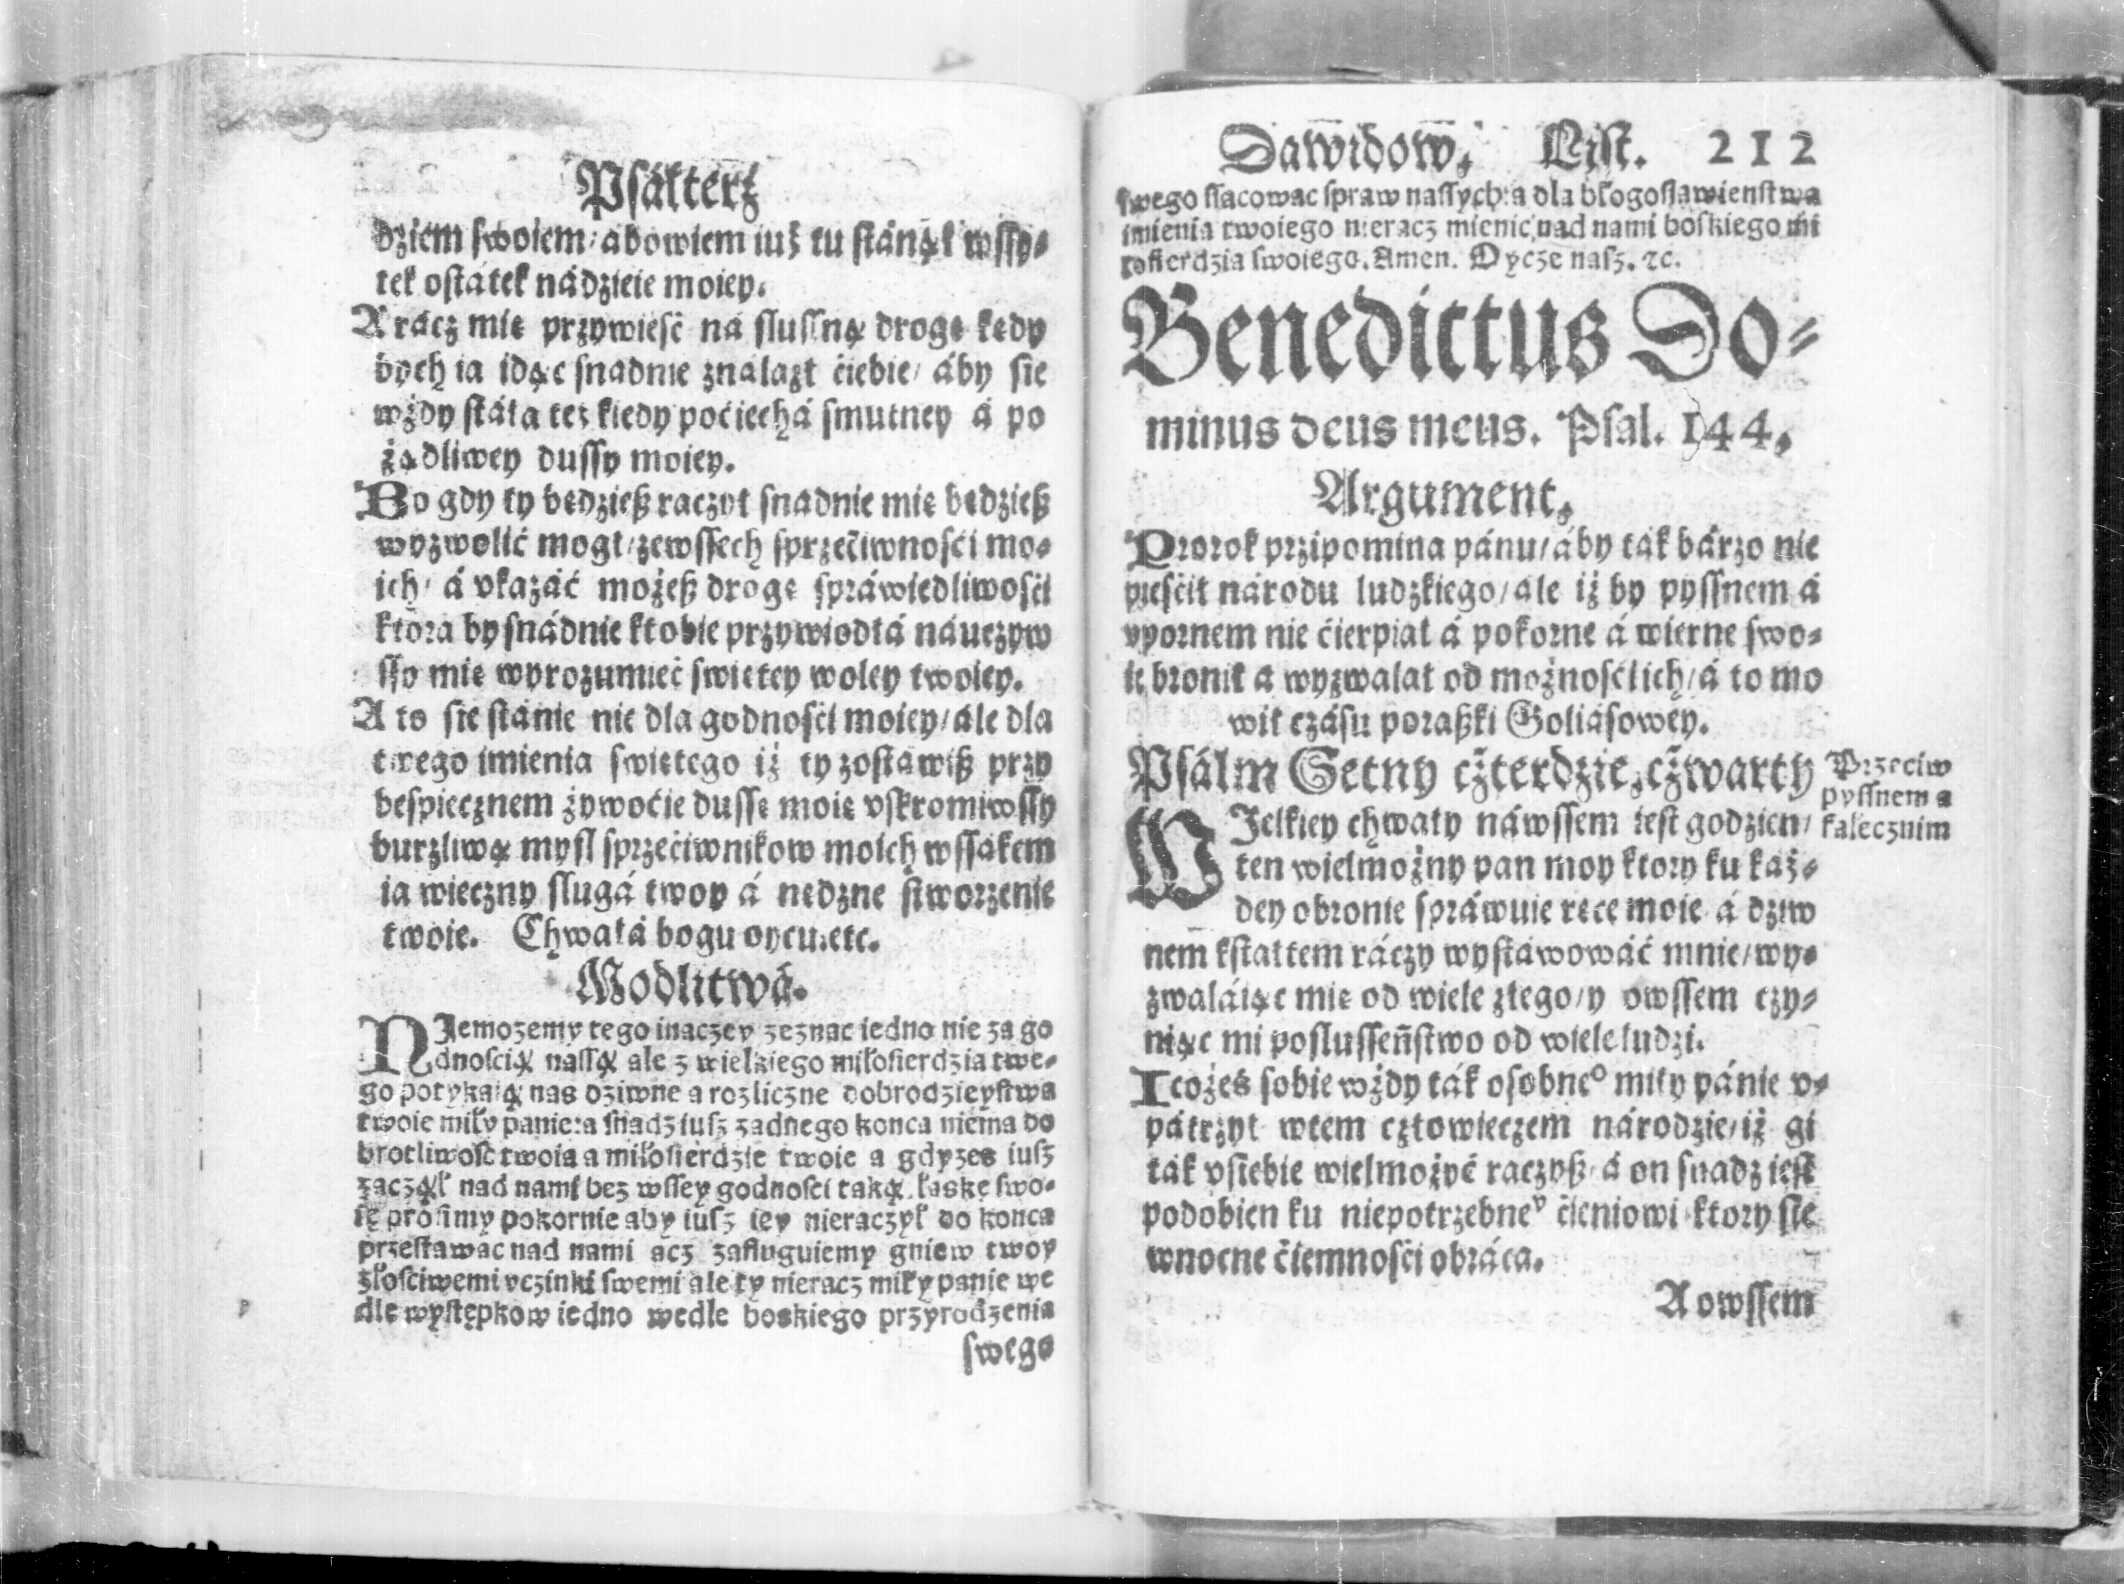 Psałterz
dziem swoiem/ abowiem iuż tu stánął wssy-
tek ostátek nádzieie moiey.
A rácz mię przywieść ná slussną drogę kędy
bych ia idąc snadnie znalazł ciebie/ áby się
wżdy stáłá też kiedy pociechá smutney á po
żądliwey dussy moiey.
Bo gdy ty będzieß raczył snadnie mię będzieß
wyzwolić mogł/ zewssech sprzeciwnośći mo-
ich/ á vkazáć możeß drogę spráwiedliwośći
ktora by snádnie ktobie przywiodłá náuczyw
ssy mię wyrozumieć swiętey woley twoiey.
A to się stánie nie dla godnośći moiey/ ále dla
twego imienia swiętego iż ty zostawiß przy
bespiecznem żywocie dussę moię vskromiwssy
burzliwą mysl sprzeciwnikow moich wssakem
ia wieczny slugá twoy á nędzne stworzenie
twoie. Chwałá bogu oycu. etc.
Modlitwá.
NJemozemy tego inaczey zeznac iedno nie za go
dnoscią nassą ale z wielkiego miłosierdzia twe-
go potykaią nas dziwne a rozliczne dobrodzieystwa
twoie miły panie: a snadz iusz zadnego konca niema do
brotliwosc twoia a miłosierdzie twoie a gdyzes iusz
zaczął nad nami bez wssey godnosci taką łaskę swo-
ię prosimy pokornie aby iusz iey nieraczył do konca
przestawac nad nami acz zasluguiemy gniew twoy
złosciwemi vczinki swemi ale ty nieracz miły panie we
dle występkow iedno wedle boskiego przyrodzenia
swego
Dawidow. List. 212
swego ssacowac spraw nassych: a dla błogosławienstwa
imienia twoiego nieracz mienic nad nami boskiego mi
łosierdzia swoiego. Amen. Oycze nasz. ⁊c.
Benedictus Do-
minus deus meus. Psal. 144.
Argument.
Prorok przipomina pánu/ áby ták bárzo nie
pieścił národu ludzkiego/ ále iż by pyssnem á
vpornem nie cierpiał á pokorne á wierne swo-
ie bronił a wyzwalał od możnośći ich/ á to mo
wił czásu poraßki Goliasowey.
Psálm Setny cżterdzie. cżwarty
Przeciw
pyssnem a
kalecznim
WJelkiey chwały náwssem iest godzien/
ten wielmożny pan moy ktory ku każ-
dey obronie spráwuie ręce moie á dziw
nem kstałtem ráczy wystáwowáć mnie/ wy-
zwaláiąc mię od wiele złego/ y owssem czy-
niąc mi poslusseństwo od wiele ludzi.
I cożeś sobie wżdy ták osobneº miły pánie v-
pátrzył wtem człowieczem národzie/ iż gi
ták vsiebie wielmożyć raczyß/ á on snadz iest
podobien ku niepotrzebneʸ cieniowi ktory się
wnocne ciemnośći obráca.
A owssem